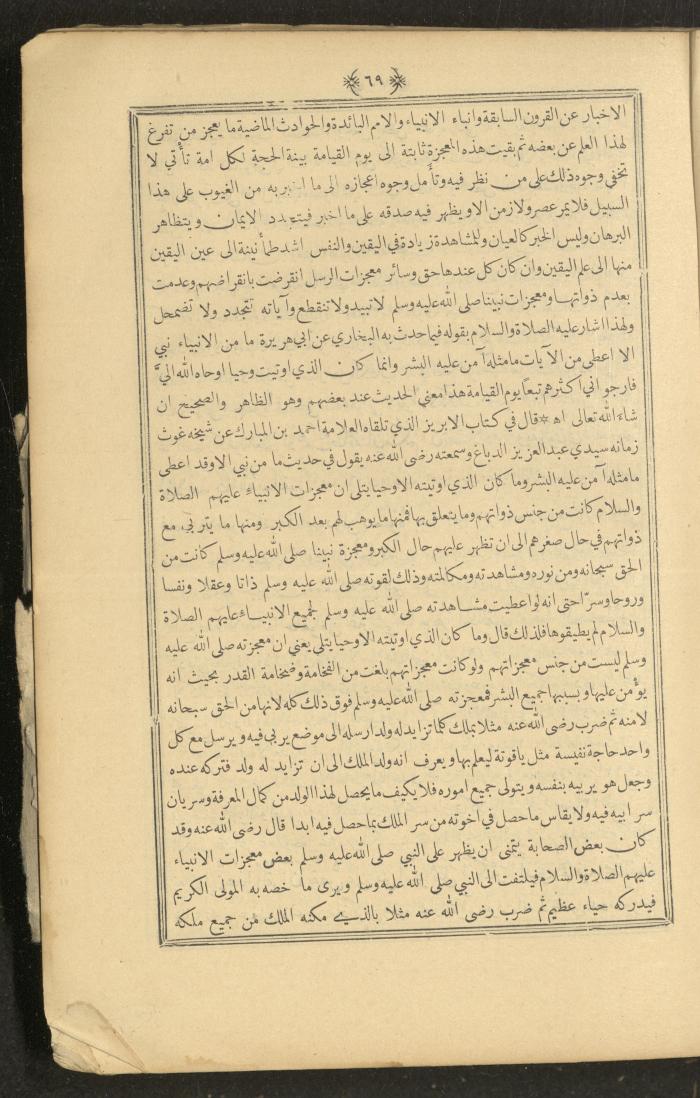 ٦٩
الاخبار عن القرون السابقة وانباء الانبياء والامم البائدة والحوادث الماضية ما يعجز من تفرغ
لهذا العلم عن بعضه ثم بقيت هذه المعجزة ثابتة الى يوم القيامة بينة الحجة لكل امة تأتي لا
تخفى وجوه ذلك على من نظر فيه وتأمل وجوه اعجازه الى ما اخبر به من الغيوب على هذا
السبيل فلا يمر عصر ولا زمن الا ويظهر فيه صدقه على ما اخبر فيتجدد الايمان ويتظاهر
البرهان وليس الخبر كالعيان وللمشاهدة زيادة في اليقين والنفس اشد طمأنينة الى عين اليقين
منها الى علم اليقين وان كان كل عندها حق وسائر معجزات الرسل انقرضت بانقراضهم وعدمت
بعدم ذواتها ومعجزات نبينا صلى الله عليه وسلم لا تبيد ولا تنقطع وآياته تتجدد ولا تضمحل
ولهذا اشار عليه الصلاة والسلام بقوله فيما حدث به البخاري عن ابي هريرة ما من الانبياء نبي
الا اعطي من الآيات ما مثله آمن عليه البشر وانما كان الذي اوتيت وحيا اوحاه الله اليَّ
فارجو اني اكثرهم تبعاً يوم القيامة هذا معنى الحديث عند بعضهم وهو الظاهر والصحيح ان
شاء الله تعالى اه * قال في كتاب الابريز الذي تلقاه العلامة احمد بن المبارك عن شيخه غوث
زمانه سيدي عبد العزيز الدباغ وسمعته رضى الله عنه يقول في حديث ما من نبي الا وقد اعطى
ما مثله آمن عليه البشر وما كان الذي اوتيته الا وحيا يتلى ان معجزات الانبياء عليهم الصلاة
والسلام كانت من جنس ذواتهم وما يتعلق بها فمنها ما يوهب لهم بعد الكبر ومنها ما يتربى مع
ذواتهم في حال صغرهم الى ان تظهر عليهم حال الكبر ومعجزة نبينا صلى الله عليه وسلم كانت من
الحق سبحانه ومن نوره ومشاهدته ومكالمته وذلك لقوته صلى الله عليه وسلم ذاتا وعقلا ونفسا
وروحا وسرّا حتى انه لو اعطيت مشاهدته صلى الله عليه وسلم لجميع الانبياء عليهم الصلاة
والسلام لم يطيقوها فلذلك قال وما كان الذي اوتيته الا وحيا يتلى يعني ان معجزته صلى الله عليه
وسلم ليست من جنس معجزاتهم ولو كانت معجزاتهم بلغت من الفخامة وضخامة القدر بحيث انه
يؤمن عليها وبسببها جميع البشر فمعجزته صلى الله عليه وسلم فوق ذلك كله لانها من الحق سبحانه
لا منه ثم ضرب رضى الله عنه مثلا بملك كلما تزايد له ولد ارسله الى موضع يربى فيه ويرسل مع كل
واحد حاجة نفيسة مثل ياقوتة ليعلم بها ويعرف انه ولد الملك الى ان تزايد له ولد فتركه عنده
وجعل هو يربيه بنفسه ويتولى جميع اموره فلا يكيف ما يحصل لهذا الولد من كمال المعرفة وسريان
سر ابيه فيه ولا يقاس ما حصل في اخوته من سر الملك بما حصل فيه ابدا قال رضى الله عنه وقد
كان بعض الصحابة يتمنى ان يظهر على النبي صلى الله عليه وسلم بعض معجزات الانبياء
عليهم الصلاة والسلام فيلتفت الى النبي صلى الله عليه وسلم ويرى ما خصه به المولى الكريم
فيدركه حياء عظيم ثم ضرب رضى الله عنه مثلا بالذي مكنه الملك من جميع ملكه